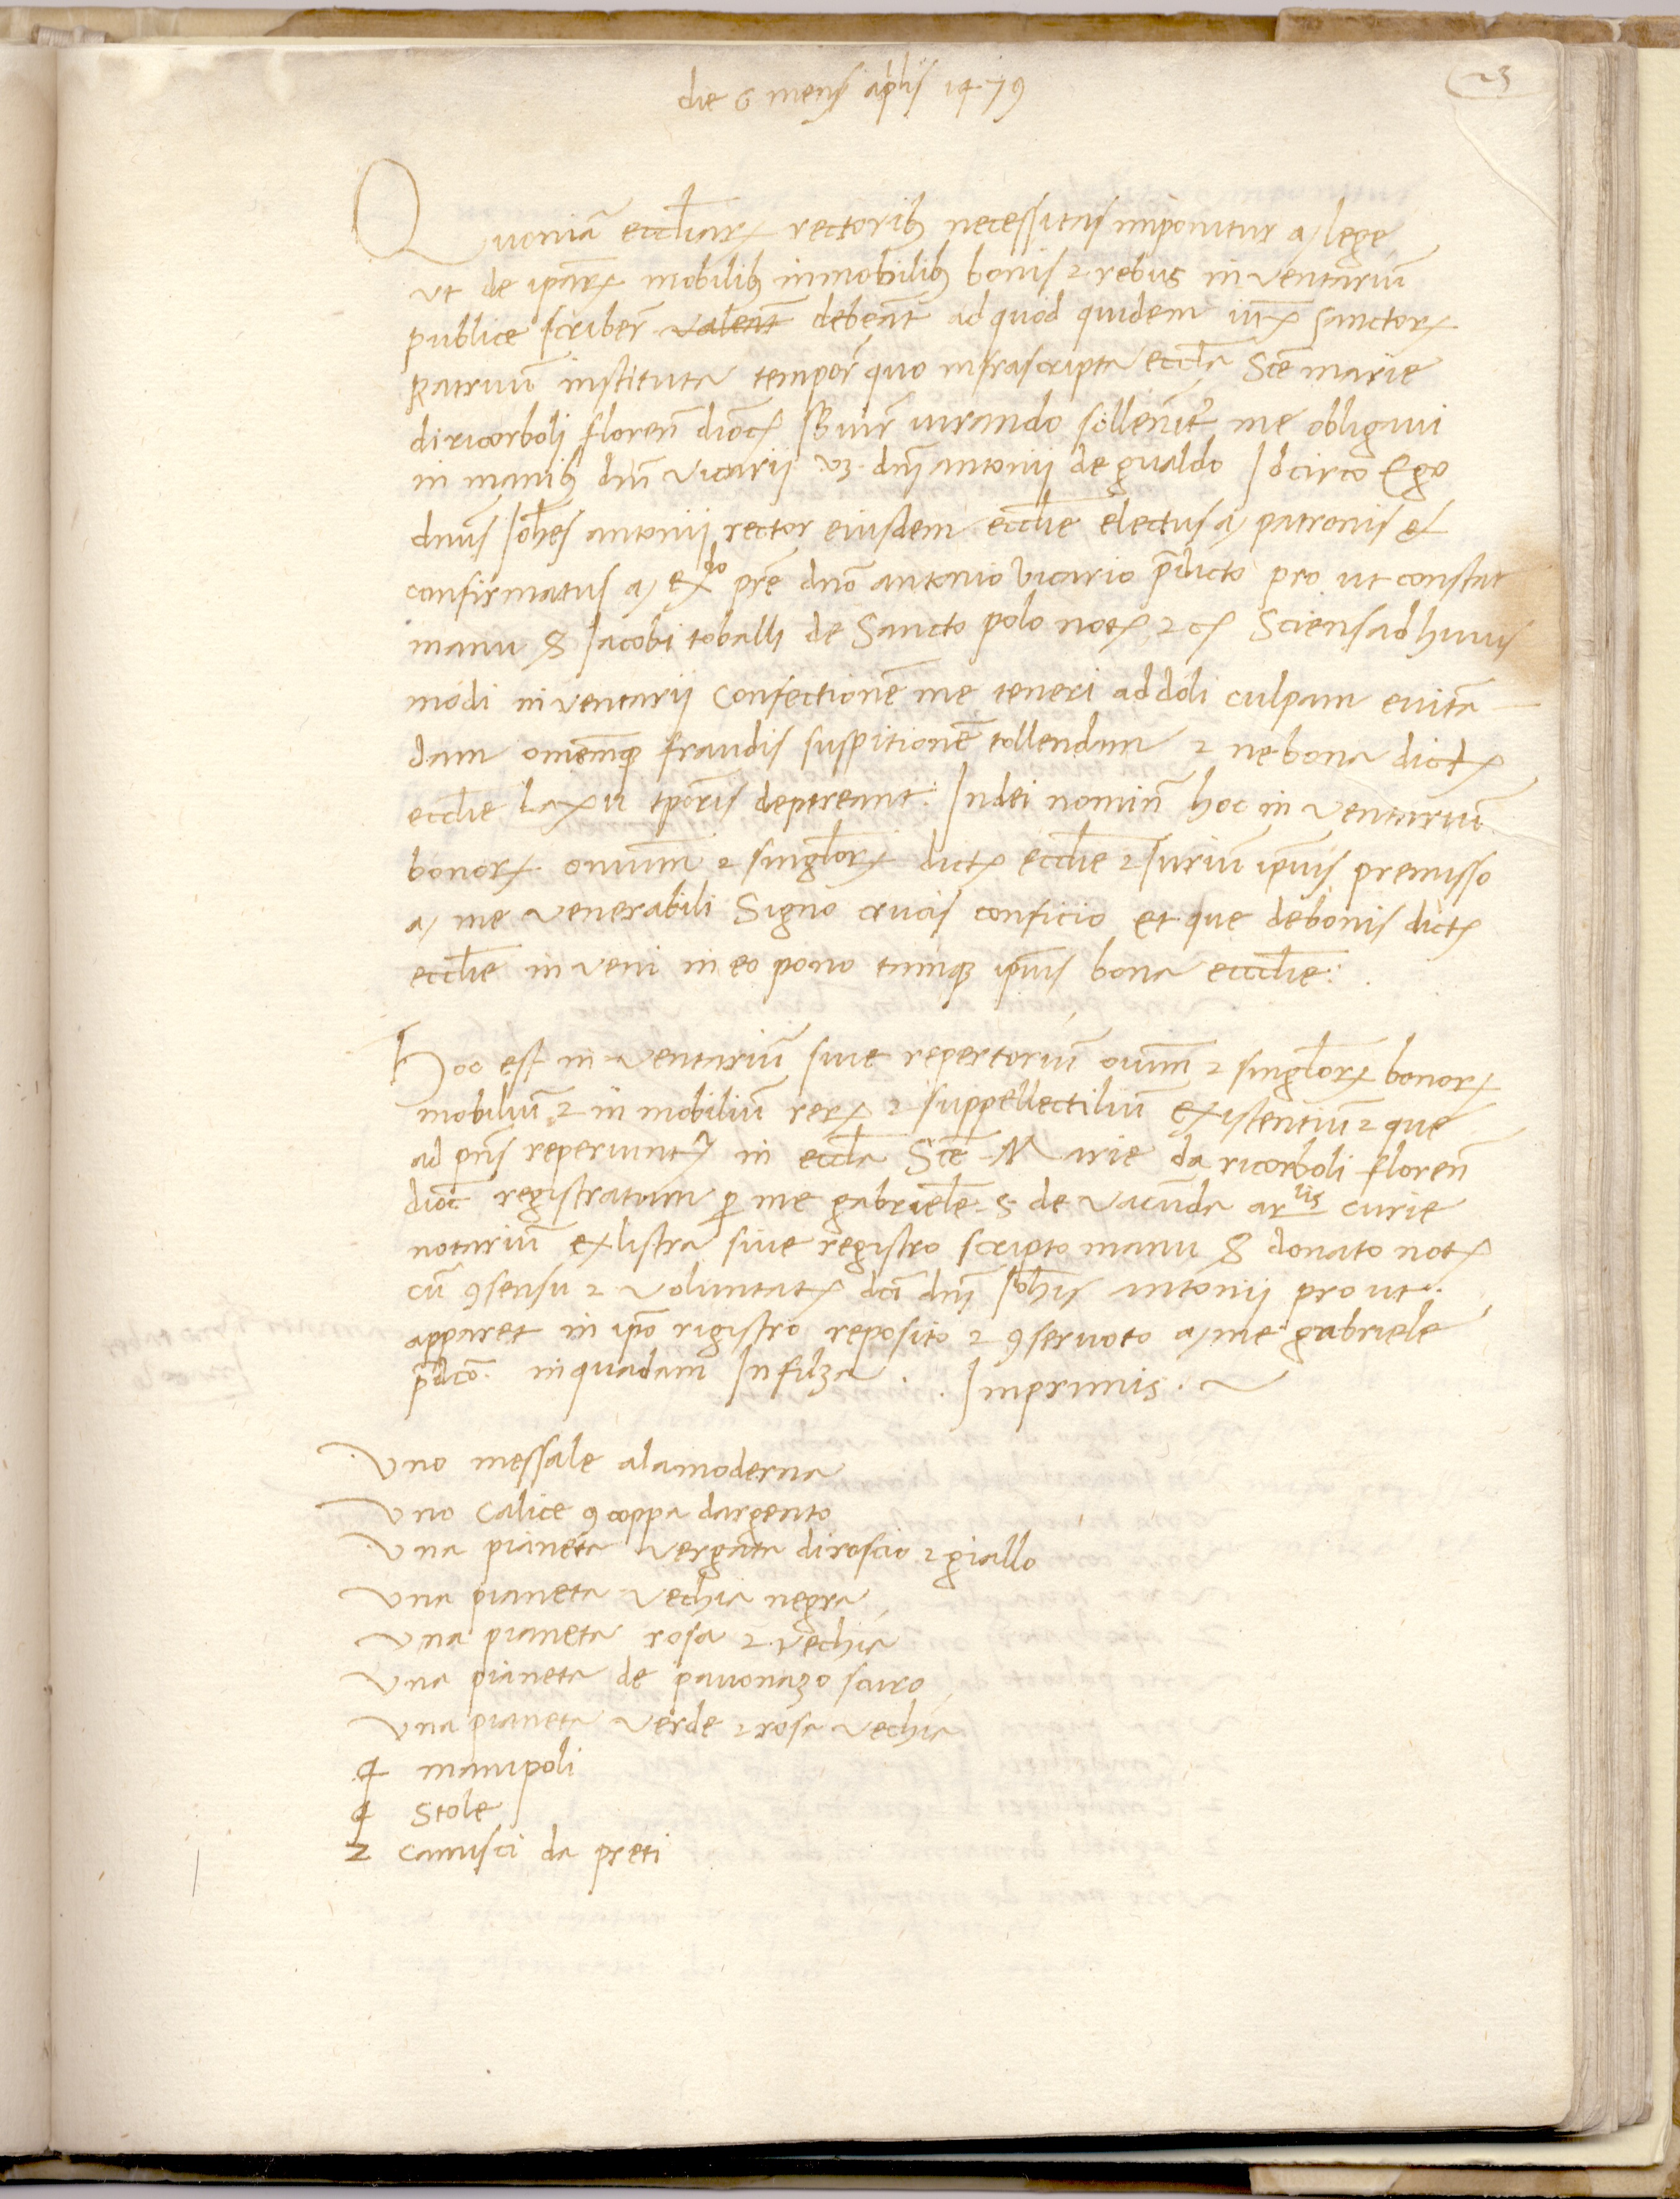 23
die 6 mensis aplis 1479
Quoniā ecclīarꝝ rectoribꝫ necessitas imponitur a lege
ut de ipsarꝝ mobilibꝫ inmobilibꝫ bonis ⁊ rebus inventariū
publice scriberē valeant debeant ad quod quidem iux sanctorꝝ
patruū instituta temporē quo infrascripta ecclā Scē marie
di ricorboli florenē dioc iurando sollenīter me obligavi
in manibꝫ dnī vicarij vꝫ dnī antonij de gualdo Idcirco Ego
dnūs Iohēs antonij rector eiusdem ecclīe electus a patronis et
confirmatus a prē dnō antonio vicario p̄dicto pro ut constat
manu S Iacobi toballi de Sancto polo not ⁊ c Sciens ad huius
modi inventarij confectionē me teneri ad doli culpam evita
dam omēmqꝫ fraudis suspitionē tollendam ⁊ ne bona dict
ecclīe laxu tporis depereant: In dei nominē hoc inventariū
bonorꝝ omniūm ⁊ singlorꝝ dict ecclīe ⁊ iuriū ipsius premisso
a me venerabili Signo crucis conficio et que de bonis dict
ecclīe inveni in eo pono tamqꝫ ipsius bona ecclīe:
Hoc est inventariū sive repertoriū oniūm ⁊ singlorꝝ bonorꝝ
mobiliū ⁊ inmobiliū rerꝝ ⁊ suppellectiliū existentiū ⁊ que
ad pn̄s reperiunt in ecclā Scē Marie da ricorboli florenē
dioc registratum p me gabrielē S de vacunda curie
notariū ex listra sive registro scripto manu S donato not
cū ꝯsensu ⁊ voluntat dcī dnī Iohis antonij pro ut
apparet in ipō rigistro reposito ⁊ ꝯservoto a me gabriele
p̄dcō in quadam Infilza. Imprimis.
Uno messale ala moderna
Uno calice ꝯ coppa dargento
Una pianeta vergata di roscio ⁊ giallo
Una pianeta vechia negra
Una pianeta rosa ⁊ vechia
Una pianeta de pavonazo scuro
Una pianeta verde ⁊ rosa vechia
4 manipoli
4 stole
2 camisci da preti